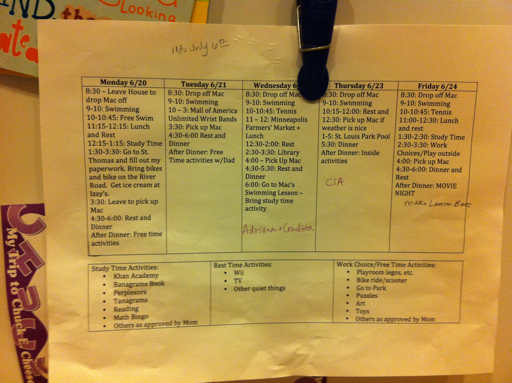 Looking
July 6th
Monday 6/20
8:30 – Leave House to
drop Mac off
9-10: Swimming
10-10:45: Free Swim
11:15-12:15: Lunch
and Rest
12:15-1:15: Study Time
1:30-3:30: Go to St.
Thomas and fill out my
paperwork. Bring bikes
and bike on the River
Road. Get ice cream at
Izzy's.
3:30: Leave to pick up
Mac
4:30-6:00: Rest and
Dinner
After Dinner: Free time
activities
Tuesday 6/21
8:30: Drop off Mac
9-10: Swimming
10 – 3: Mall of America
Unlimited Wrist Bands
3:30: Pick up Mac
4:30-6:00 Rest and
Dinner
After Dinner: Free
Time activities w/Dad
Wednesday
8:30: Drop off Mac
9-10: Swimming
10-10:45: Tennis
11 – 12: Minneapolis
Farmers' Market +
Lunch
12:30-2:00: Rest
2:30-3:30: Library
4:00 – Pick Up Mac
4:30-5:30: Rest and
Dinner
6:00: Go to Mac's
Swimming Lesson –
Bring study time
activity
Thursday 6/23
8:30: Drop off Mac
9-10: Swimming
10:15-12:00: Rest and
12:30: Pick up Mac if
weather is nice
1-5: St. Louis Park Pool
5:30: Dinner
After Dinner: Inside
activities
CSA
Friday 6/24
8:30: Drop off Mac
9-10: Swimming
10-10:45: Tennis
11:00-12:30: Lunch
and rest
1:30-2:30: Study Time
2:30-3:30: Work
Choices/Play outside
4:00: Pick up Mac
4:30-6:00: Dinner and
Rest
After Dinner: MOVIE
NIGHT
Make Lemon Bars
Study Time Activities:
• Khan Academy
• Banagrams Book
• Perplexors
• Tanagrams
• Reading
• Math Bingo
• Others as approved by Mom
Rest Time Activities:
• Wii
• TV
• Other quiet things
Work Choice/Free Time Activities:
• Playroom legos, etc.
• Bike ride/scooter
• Go to Park
• Puzzles
• Art
• Toys
• Others as approved by Mom
My Trip to Chuck E. Cheese